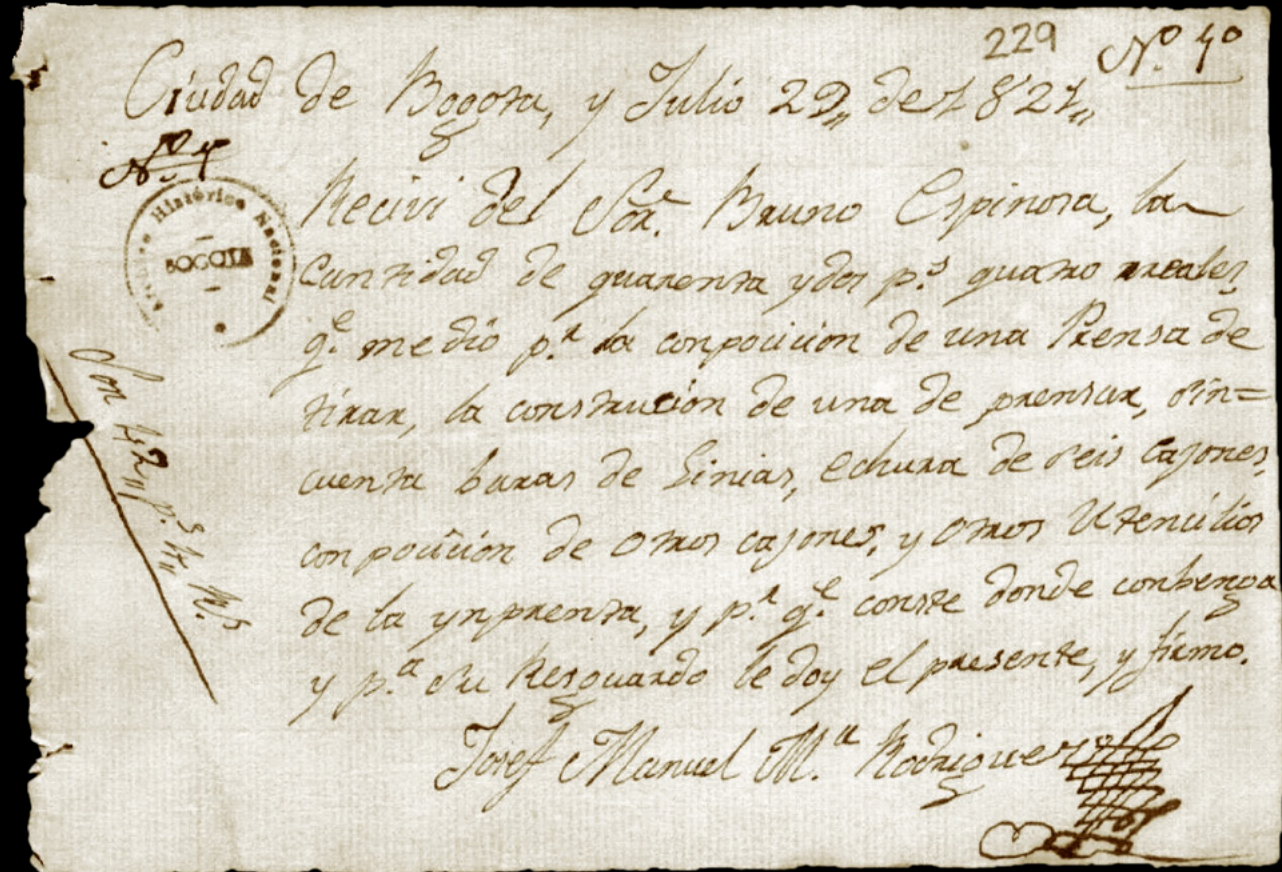 229 Nº 4º
Ciudad de Bogota, y Julio 29,, de 1821,,
Nº 4º
Archivo Histórico Nacional
BOGOTA
Recivi del Sor. Bruno Espinosa, la
Cantidad de quarenta y dos p.s quatro reales,
q.e me dió p.a la conposicion de una Prensa de
tirar, la construción de una de prensar, sin=
cuenta baras de Linias, echura de seis cajones,
conposición de otros cajones, y otros Utencilios
de la ynprenta, y p.a q.e conste donde conbenga
y p.a su Resguardo le doy el presente, y firmo.
Josef Manuel M.a Rodriguez
Son 42,, p.s 4,, R.s